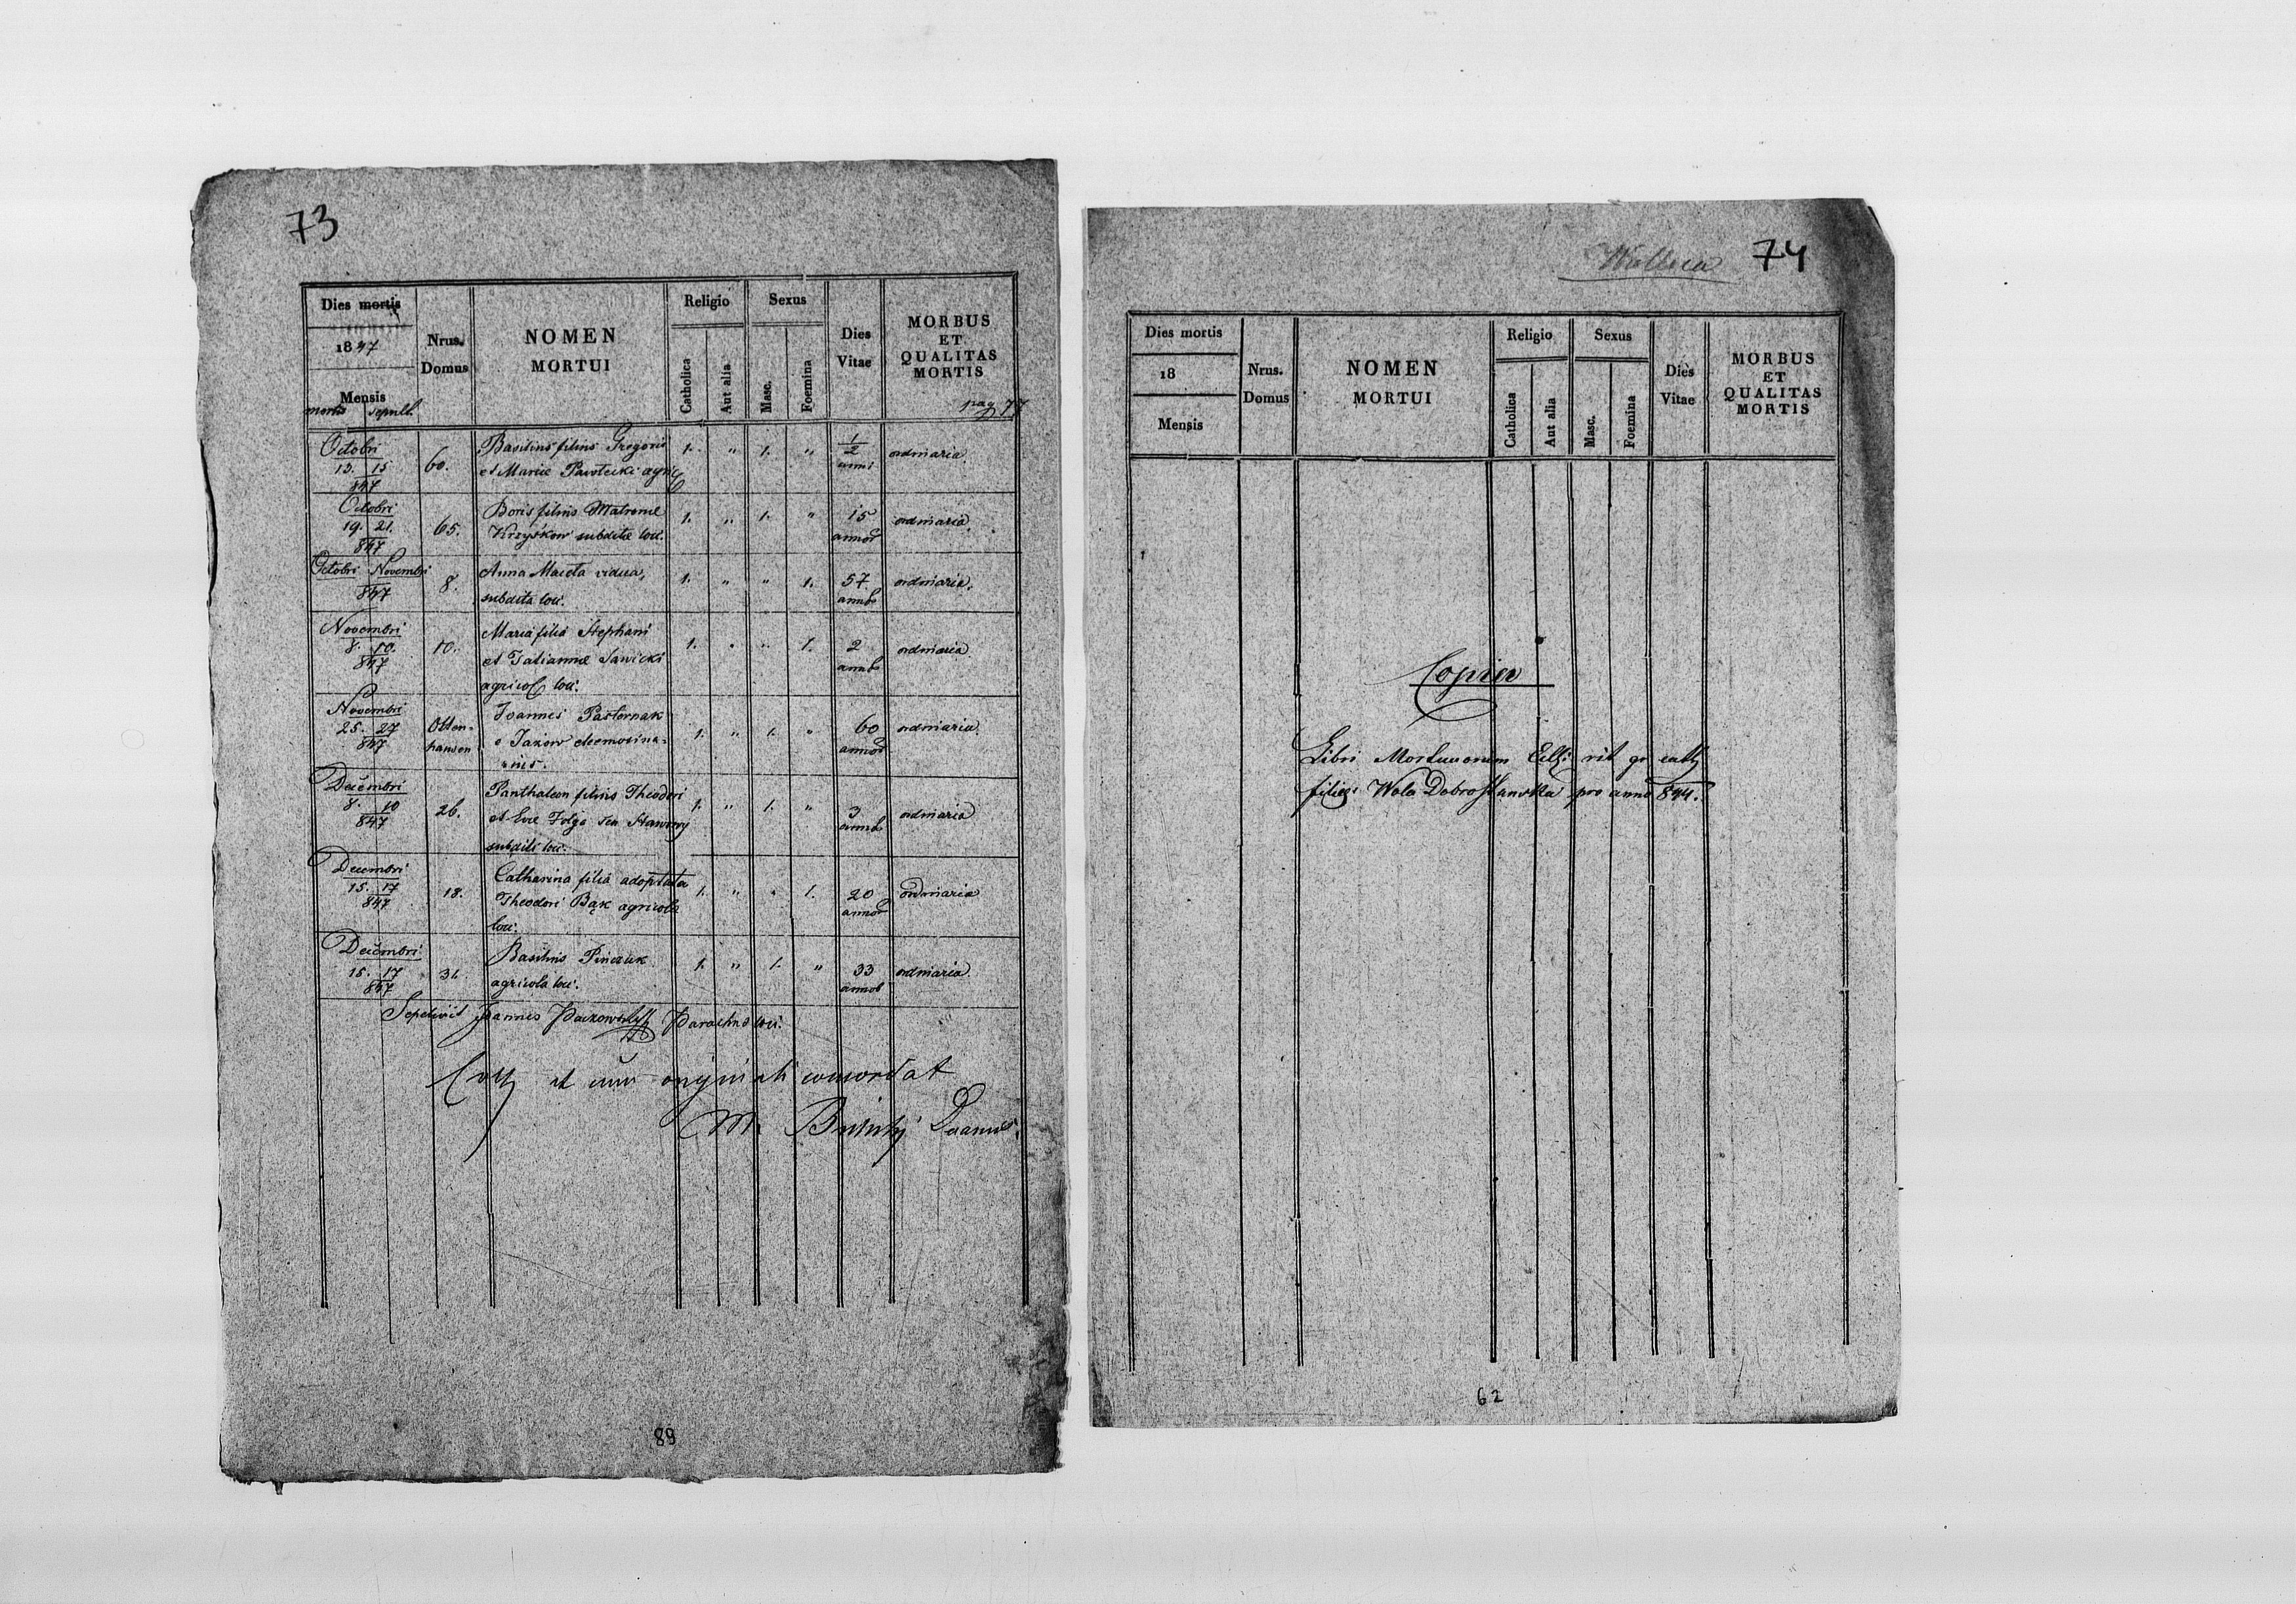 73
Dies mortis
1847
Mensis
mortis sepult.
Nrus. Domus
NOMEN
MORTUI
Religio
Catholica
Aut alia
Sexus
Masc.
Foemina
Dies
Vitae
MORBUS
ET
QUALITAS
MORTIS
pag 77
Octobri
13. 15
847
60.
Basilius filius Gregorii
et Mariæ Pawlecki agric
1. " 1. "
1/2
anni
ordinaria
Octobri
19. 21.
847
65.
Boris filius Matronæ
Krzyśkow subditæ loci.
1. " 1. "
15
annor
ordinaria
Octobri Novembri
847
8.
Anna Maieta vidua,
subdita loci.
1. " " 1.
57
annor
ordinaria.
Novembri
8. 10.
847
10.
Maria filia Stephani
et Tatiannæ Sawicki
agricol loci.
1. " " 1.
2
annor
ordinaria
Novembri
25. 27
847
Otten-
hausen
Joannes Pasternak
e Jazow eleemosina-
rius.
1. " 1. "
60
annor
ordinaria.
Decembri
8. 10
847
26.
Panthaleon filius Theodori
et Evæ Folga seu Stawowy
subditi loci.
1. " 1. "
3
annor
ordinaria
Decembri
15. 17
847
18.
Catharina filia adoptata
Theodori Bąk agricolæ
loci.
1. " " 1.
20
annor
ordinaria
Decembri
15. 17
847
31.
Basilius Pinczuk
agricola loci.
1. " 1. "
33
annor
ordinaria.
Sepelivit Joannes Parochus loci.
et cum originali concordat
M. Decanus.
89
74
Dies mortis
18
Mensis
Nrus.
Domus
NOMEN
MORTUI
Religio
Catholica
Aut alia
Sexus
Masc.
Foemina
Dies
Vitae
MORBUS
ET
QUALITAS
MORTIS
Copia
Libri Mortuorum Eccl: rit gr cath
filial: Wola Dobrostanska pro anno 844.
62